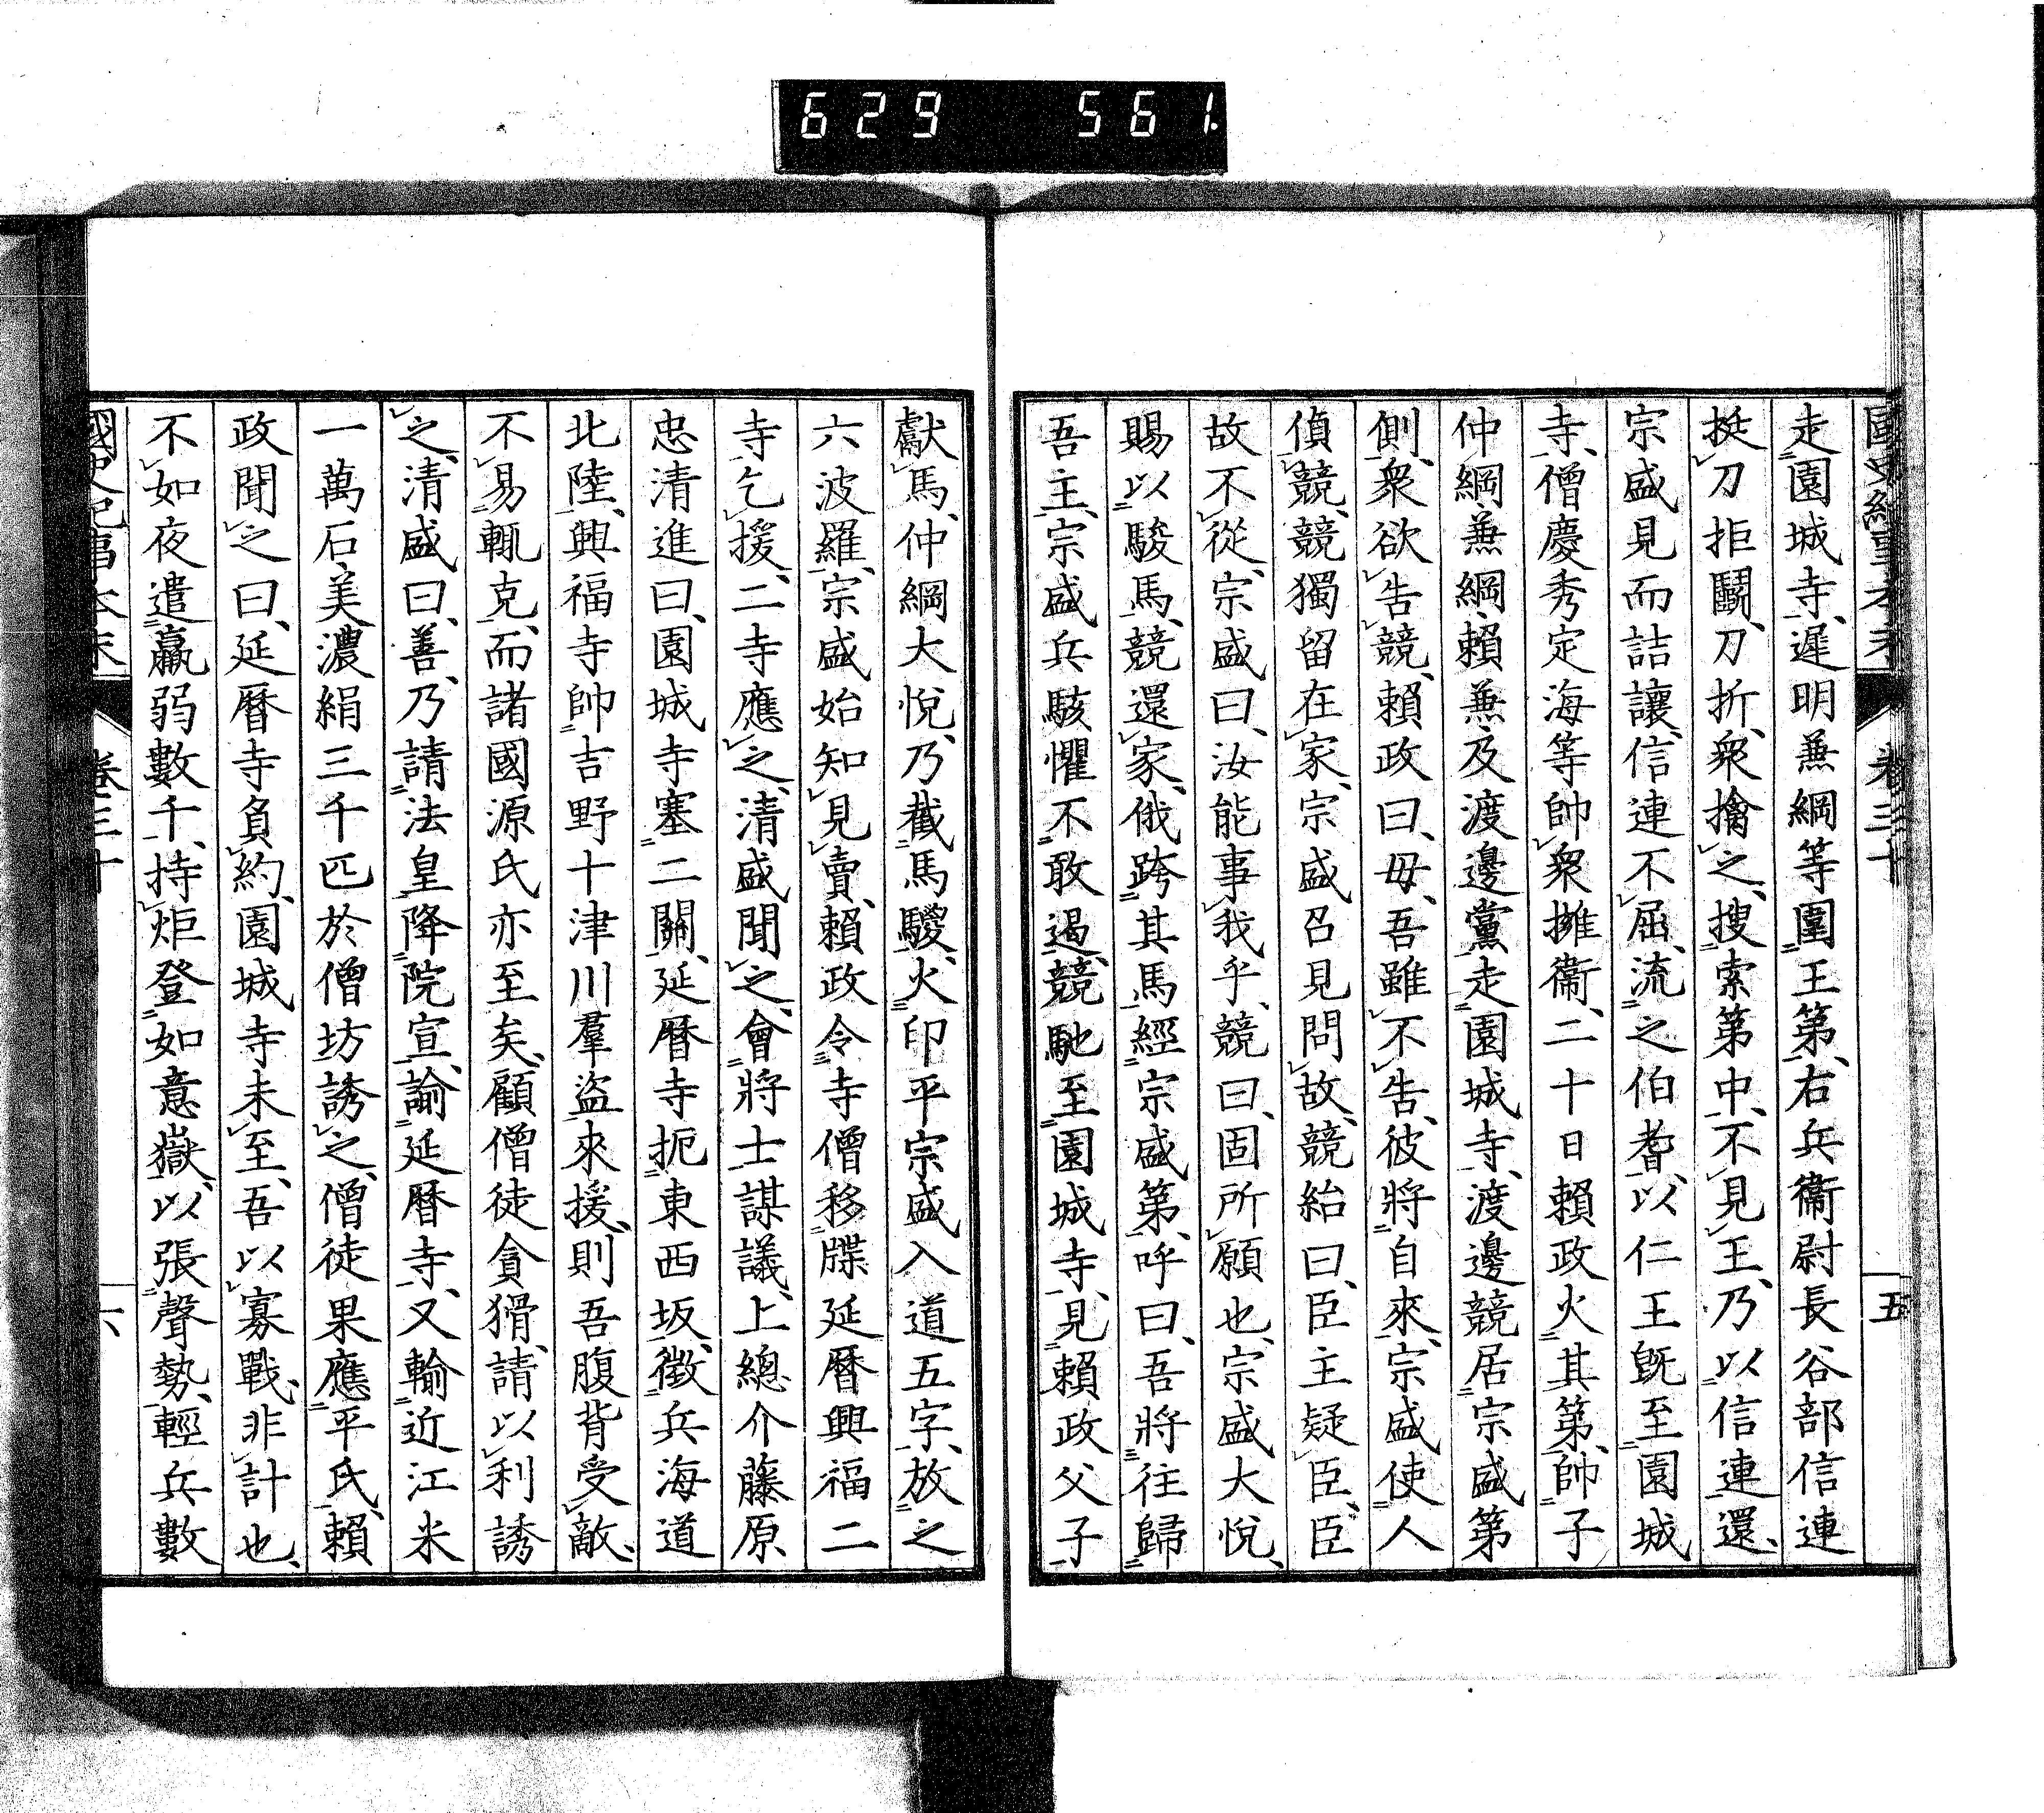 629 561.
國史紀事本末 卷三十 五
走園城寺、遲明兼綱等圍王第、右兵衞尉長谷部信連
挺刀拒鬪、刀折、衆擒之、搜索第中、不見王、乃以信連還、
宗盛見而詰讓、信連不屈、流之伯耆、以仁王旣至園城
寺、僧慶秀定海等帥衆擁衞、二十日賴政火其第、帥子
仲綱兼綱賴兼及渡邊黨走園城寺、渡邊競居宗盛第
側、衆欲告競、賴政曰、毋、吾雖不告、彼將自來、宗盛使人
偵競、競獨留在家、宗盛召見問故、競紿曰、臣主疑臣、臣
故不從、宗盛曰、汝能事我乎、競曰、固所願也、宗盛大悅、
賜以駿馬、競還家、俄跨其馬經宗盛第、呼曰、吾將往歸
吾主、宗盛兵駭懼不敢遏、競馳至園城寺、見賴政父子
獻馬、仲綱大悅、乃截馬騣、火印平宗盛入道五字、放之
六波羅、宗盛始知見賣、賴政令寺僧移牒延曆興福二
寺乞援、二寺應之、清盛聞之、會將士謀議、上總介藤原
忠清進曰、園城寺塞二關、延曆寺扼東西坂、徵兵海道
北陸、興福寺帥吉野十津川羣盜來援、則吾腹背受敵、
不易輒克、而諸國源氏亦至矣、顧僧徒貪猾、請以利誘
之、清盛曰、善、乃請法皇降院宣、諭延曆寺、又輸近江米
一萬石美濃絹三千匹於僧坊誘之、僧徒果應平氏、賴
政聞之曰、延曆寺負約、園城寺未至、吾以寡戰、非計也、
不如夜遣羸弱數千、持炬登如意嶽、以張聲勢、輕兵數
國史紀事本末 卷三十 六